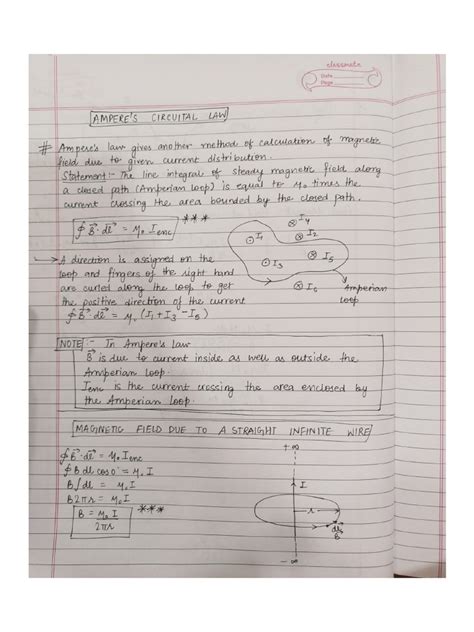 classmate
Date
Page
AMPERE'S CIRCUITAL LAW
# Ampere's law gives another method of calculation of magnetic
field due to given current distribution.
Statement:- The line integral of steady magnetic field along
a closed path (Amperian loop) is equal to μ₀ times the
current crossing the area bounded by the closed path.
∮B⃗·dl⃗ = μ₀ Ienc ***
⊗ I₄
⊙ I₁
⊗ I₂
⊙ I₃
⊗ I₅
⊗ I₆
Amperian
loop
→ A direction is assigned on the
loop and fingers of the right hand
are curled along the loop to get
the positive direction of the current
∮B⃗·dl⃗ = μ₀ (I₁ + I₃ - I₅)
NOTE :- In Ampere's law
B⃗ is due to current inside as well as outside the
Amperian loop.
Ienc is the current crossing the area enclosed by
the Amperian loop.
MAGNETIC FIELD DUE TO A STRAIGHT INFINITE WIRE
∮B⃗·dl⃗ = μ₀ Ienc
∮B dl cos0° = μ₀ I
B∫dl = μ₀ I
B2πr = μ₀ I
B = μ₀ I
2πr
***
+∞
I
r
dl
B
-∞